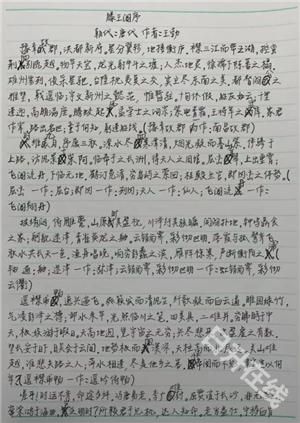 滕王阁序
朝代：唐代 作者：王勃
郡，洪都新府。星分翼轸，地接衡庐。襟三江而带五湖，控蛮
荆引瓯越。物华天宝，龙光射牛斗之墟；人杰地灵，徐孺下陈蕃之榻。
雄州雾列，俊采星驰。台隍枕夷夏之交，宾主尽东南之美。都督阎公之
雅望，遥临；宇文新州之懿范，暂驻。十旬休假，胜友如云；千里
逢迎，高朋满座。腾蛟起，孟学士之词宗；紫电青霜，王将军之库。家君
作宰，路出名区；童子何知，躬逢胜饯。(豫章故郡 作：南昌故郡)
九月，序属三秋。潦水尽寒潭清，烟光凝而暮山紫。俨骖于
上路，访风景阿。临帝子之长洲，得天人之旧馆。层，上出重霄；
飞阁，下临无地。鹤汀凫渚，穷岛屿之萦回；桂殿兰宫，即冈峦之体势。(
层 一作：层台；即冈 一作：列冈；天人 一作：仙人；飞阁 一作：
飞阁翔丹)
披绣闼，俯雕甍，山原其盈视，川泽纡其骇瞩。闾阎扑地，钟鸣鼎食
之家；舸舰，青雀黄龙之舳。云销雨霁，彩彻区明。落霞与孤鹜齐飞，
秋水共长天一色。渔舟唱晚，响穷彭蠡之滨；雁阵惊寒，声断衡阳之。(
轴 通：舳； 一作：；云销雨霁，彩彻区明 一作：虹销雨霁，彩彻
云衢)
遥襟畅，逸兴遄飞。爽籁发而清风生，纤歌凝而白云遏。睢园绿竹，
气凌彭泽之樽；邺水朱华，光照临川之笔。四美具，二难并。穷睇眄于中
天，极娱游于暇日。天高地迥，觉宇宙之无穷；兴尽悲来，识盈虚之有数。
望长安于日下，目吴会于云间。地势极而南溟深，天柱高而北辰远。关山难
越，谁悲失路之人；萍水相逢，尽是他乡之客。怀帝阍而不见，奉宣室以何
年？(遥襟畅 一作：遥吟俯畅)
嗟乎！时运不齐，命途多舛。冯唐易老，李广难封。屈贾谊于长沙，非无
君子见机，达人知命。老当益壮，宁移白首